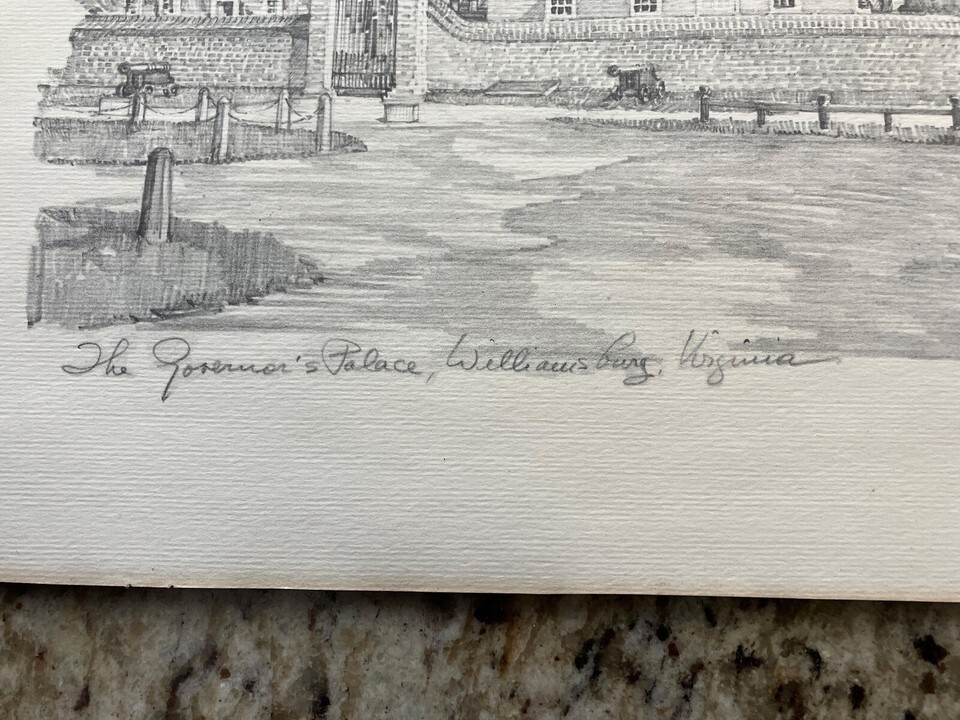 The Governor's Palace, Williamsburg, Virginia